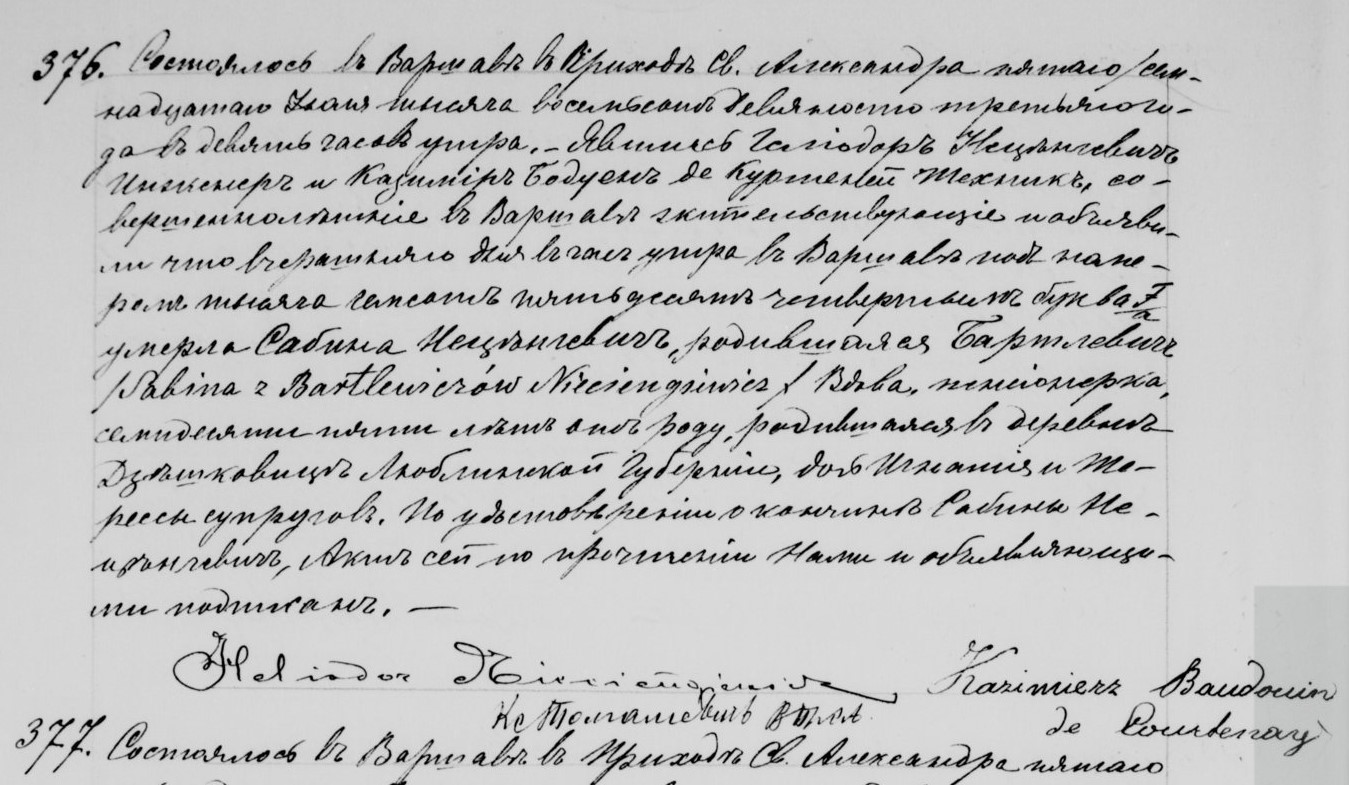 376. Состоялось въ Варшавѣ въ Приходѣ Св. Александра пятаго/сем-
надцатаго Іюня тысяча восемьсотъ девяносто третьяго го-
да въ девять часовъ утра. – Явились Геліодоръ Нецѣнгевичъ
Инженеръ и Казиміръ Бодуенъ де Куртеней Техникъ, со-
вершеннолѣтніе въ Варшавѣ жительствующіе и объяви-
ли что вчерашняго дня въ часъ утра въ Варшавѣ подъ номе-
ромъ тысяча шестьсотъ пятьдесятъ четвертымъ буква
умерла Сабина Нецѣнгевичъ, родившаяся Бартлевичъ
/Sabina z Bartlewiczów Nieciengiewicz/ Вдова, пенсіонерка,
семидесяти пяти лѣтъ отъ роду, родившаяся въ деревнѣ
Дзѣшковицѣ Люблинской Губерніи, дочь Игнатія и Те-
рессы супруговъ. По удостовѣреніи о кончинѣ Сабины Не-
цѣнгевичъ, Актъ сей по прочтеніи Нами и объявляющи-
ми подписанъ. —
Heliodor Nieciengiewicz Kazimierz Baudouin
de Courtenay
Кс
377. Состоялось въ Варшавѣ въ Приходѣ Св. Александра пятаго